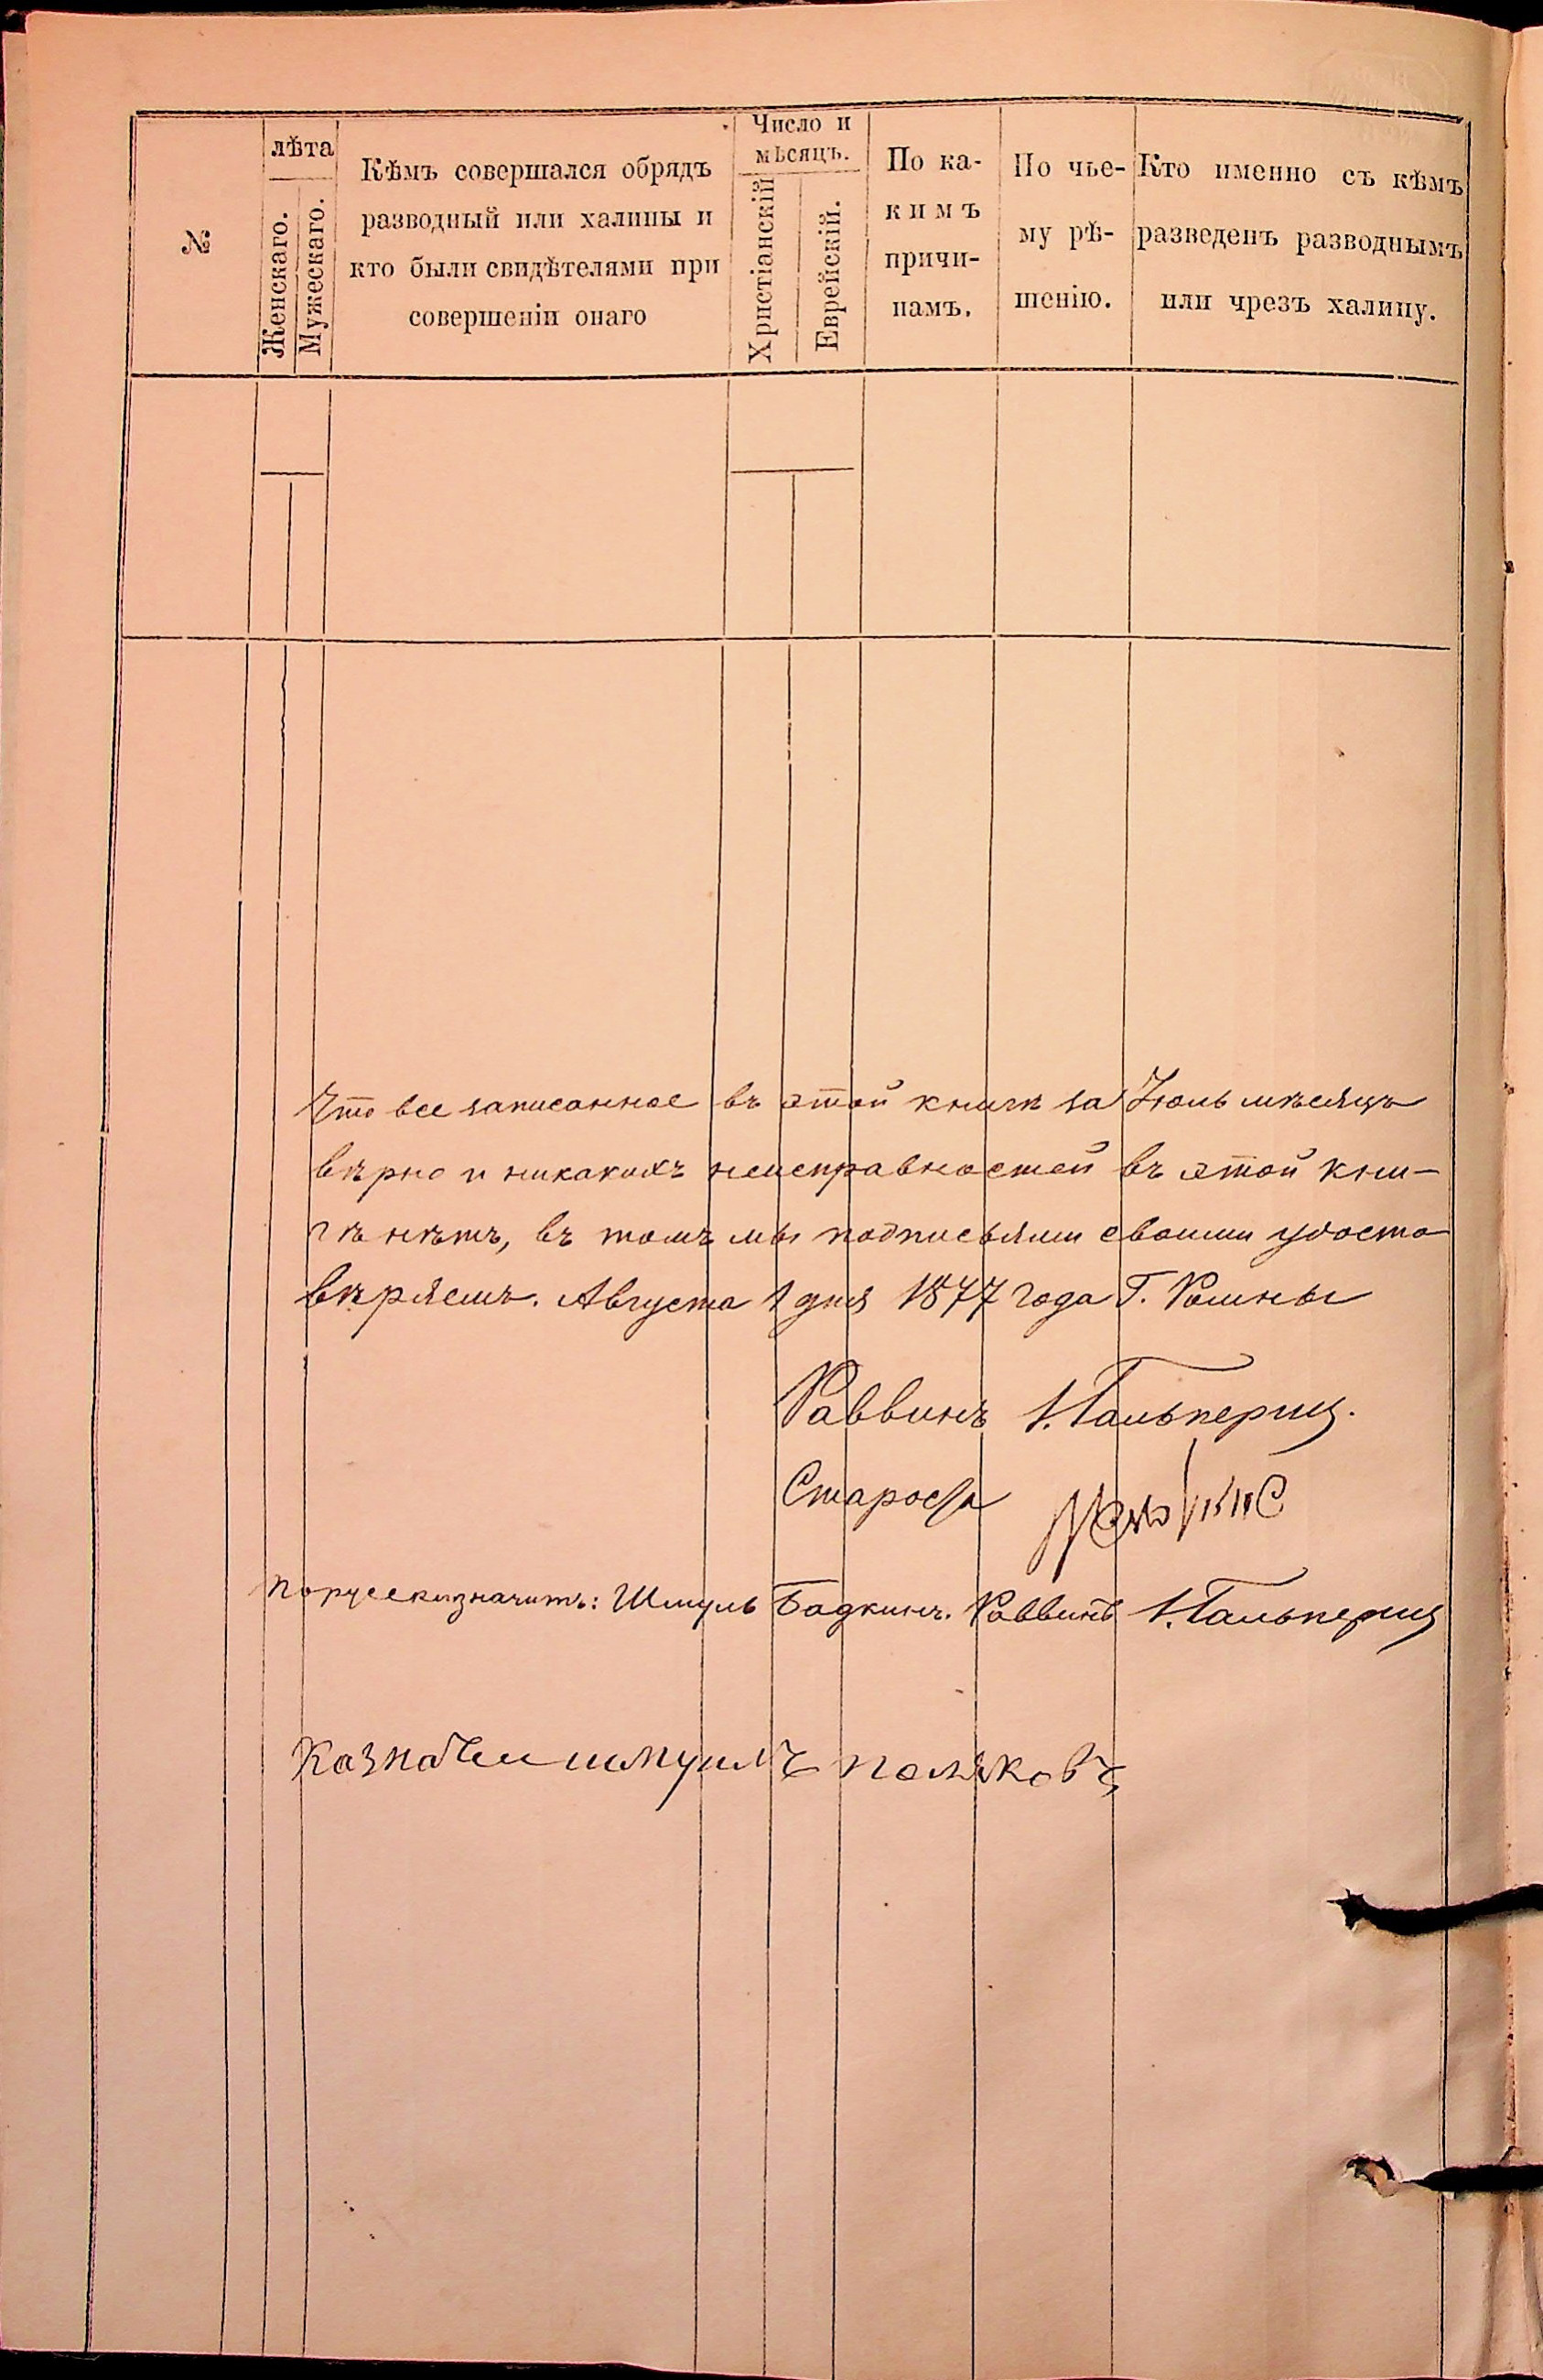 №
лѣта
Женскаго.
Мужескаго.
Кѣмъ совершался обрядъ
разводный или халицы и
кто были свидѣтелями при
совершеніи онаго
Число и
мѣсяцъ.
Христіанскій
Еврейскій.
По ка-
кимъ
причи-
намъ.
По чье-
му рѣ-
шенію.
Кто именно съ кѣмъ
разведенъ разводнымъ
или чрезъ халицу.
Что все записанное въ этой книгѣ за Іюль мѣсяцъ
вѣрно и никакихъ неисправностей въ этой кни-
гѣ нѣтъ, въ томъ мы подписьями своими удосто
вѣряемъ. Августа 1 дня 1877 года Г. Ромны
Раввинъ И. Гальперинъ.
Староста
порусски значитъ: Шмуль Бадкинъ. Раввинъ И. Гальперинъ
Казначеи шмуилъ поляковъ